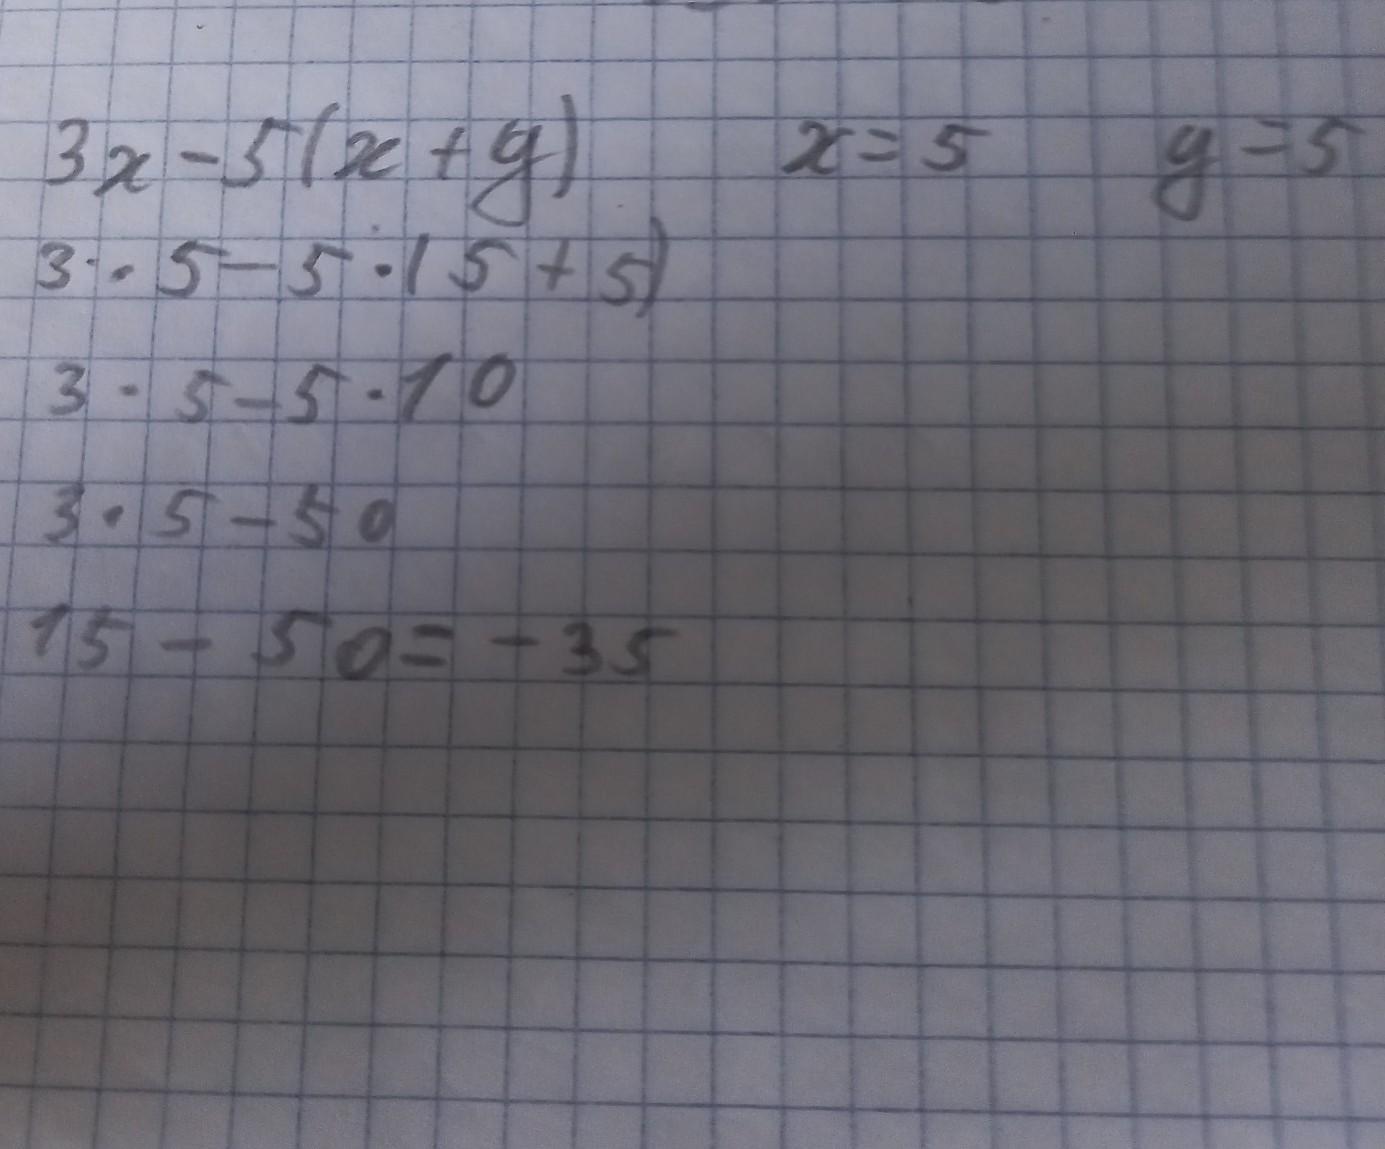 3x - 5(x + y) x = 5 y = 5
3 · 5 - 5 · (5 + 5)
3 · 5 - 5 · 10
3 · 5 - 50
15 - 50 = -35